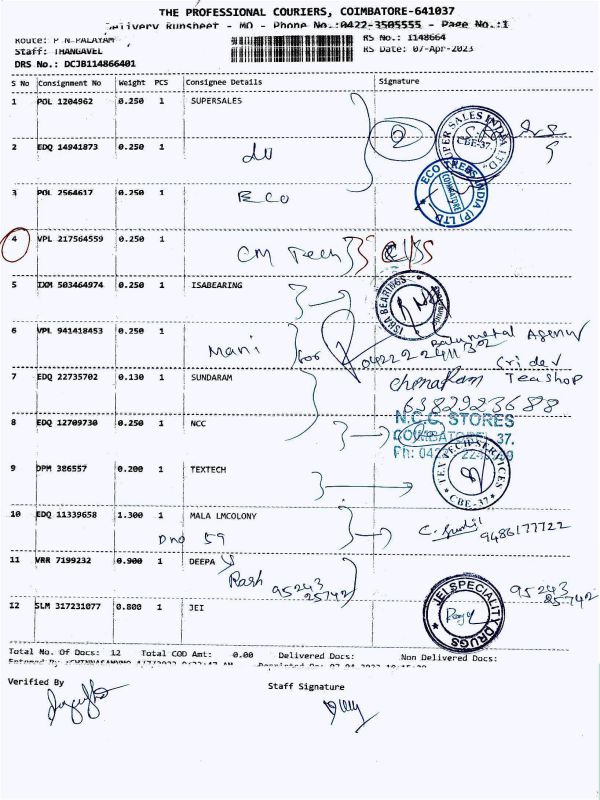 THE PROFESSIONAL COURIERS, COIMBATORE-641037
Delivery Runsheet - MO - Phone No.:0422-3505555 - Page No.:1
Route: P N PALAYAM
RS No.: I148664
Staff: THANGAVEL
RS Date: 07-Apr-2023
DRS No.: DCJB114866401
S No Consignment No Weight PCS Consignee Details Signature
1 POL 1204962 0.250 1 SUPERSALES
2 EDQ 14941873 0.250 1
SUPER SALES INDIA LTD. CBE-37.
3 POL 2564617 0.250 1
Eco
ECO TREES INDIA (P) LTD COIMBATORE
4 VPL 217564559 0.250 1
CM Tech
5 IXM 503464974 0.250 1 ISABEARING
ISHA BEARINGS
6 VPL 941418453 0.250 1
Mani for
Balu metal Agency
Sri dev
7 EDQ 22735702 0.130 1 SUNDARAM
Tea shop
6382923688
8 EDQ 12709730 0.250 1 NCC
N.C.C. STORES
COIMBATORE 37.
9 DPM 386557 0.200 1 TEXTECH
TEX TECH SERVICES CBE-37
10 EDQ 11339658 1.300 1 MALA LMCOLONY
Dno 59
9486177722
11 VRR 7199232 0.900 1 DEEPA
95243
85742
95243
85742
12 SLM 317231077 0.800 1 JEI
JEI SPECIALITY DRUGS
Total No. Of Docs: 12 Total COD Amt: 0.00 Delivered Docs: Non Delivered Docs:
Verified By
Staff Signature